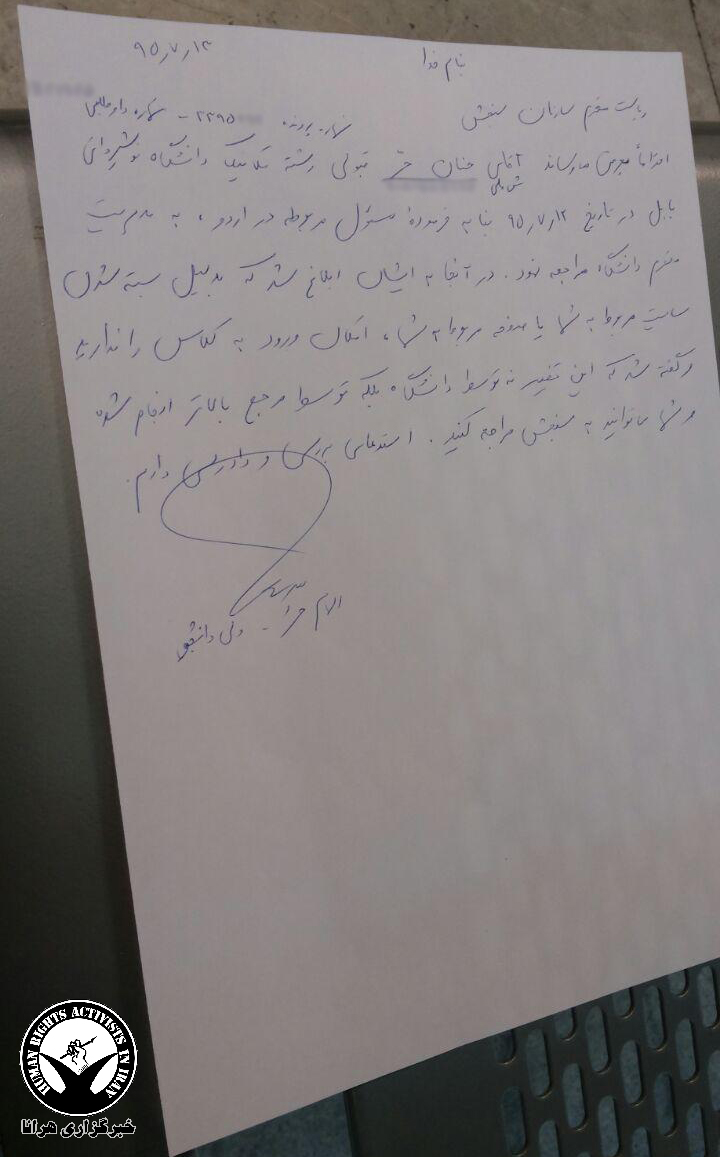 ۹۵٫۷٫۱۳
بنام خدا
ریاست محترم سازمان سنجش
شماره پرونده ۲۲۹۵ - شماره داوطلبی
احتراماً بعرض میرساند آقای حنان حر قبولی رشته مکانیک دانشگاه نوشیروانی
بابل در تاریخ ۹۵٫۷٫۱۲ بنا به فرموده مسئول مربوطه در اردو ، به مدیریت
محترم دانشگاه مراجعه نمود . در آنجا به ایشان ابلاغ شد که بدلیل بسته شدن
سایت مربوط به شما یا صفحه مربوط به شما ، امکان ورود به کلاس را ندارید
و گفته شد که این تغییر نه توسط دانشگاه بلکه توسط مرجع بالاتر انجام شده
و شما میتوانید به سنجش مراجعه کنید . استدعای بررسی و دادرسی دارم .
ولی دانشجو
HUMAN RIGHTS ACTIVISTS IN IRAN
خبرگزاری هرانا